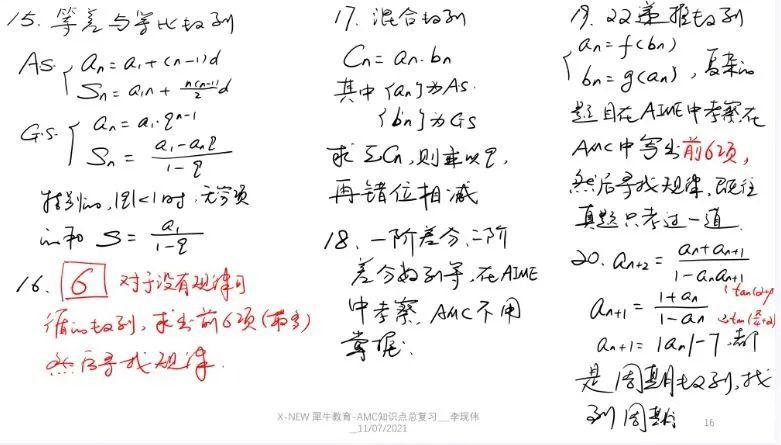 15. 等差与等比数列
A.S. { an = a1 + (n-1)d
Sn = a1n + n(n-1)/2 d
G.S. { an = a1·q^(n-1)
Sn = (a1 - anq)/(1-q)
特别的, |q|<1时, 无穷项
的和 S = a1/(1-q)
16. 6 对于没有规律可
循的数列, 求出前6项(最多)
然后寻找规律.
17. 混合数列
Cn = an·bn
其中{an}为A.S.
{bn}为GS
求ΣCn, 则乘以q,
再错位相减
18. 一阶差分、二阶
差分数列等, 在AIME
中考察, AMC不用
掌握.
19. 22递推数列
{ an = f(bn)
bn = g(an), 复杂的
题目在AIME中考察, 在
AMC中写出前6项,
然后寻找规律. 既往
真题只考过一道.
20. an+2 = (an + an+1)/(1 - an an+1)
an+1 = (1+an)/(1-an)
an+1 = |an| - 7, 都
是周期数列, 找
到周期
X-NEW 犀牛教育-AMC知识点总复习__李现伟
__11/07/2021
16